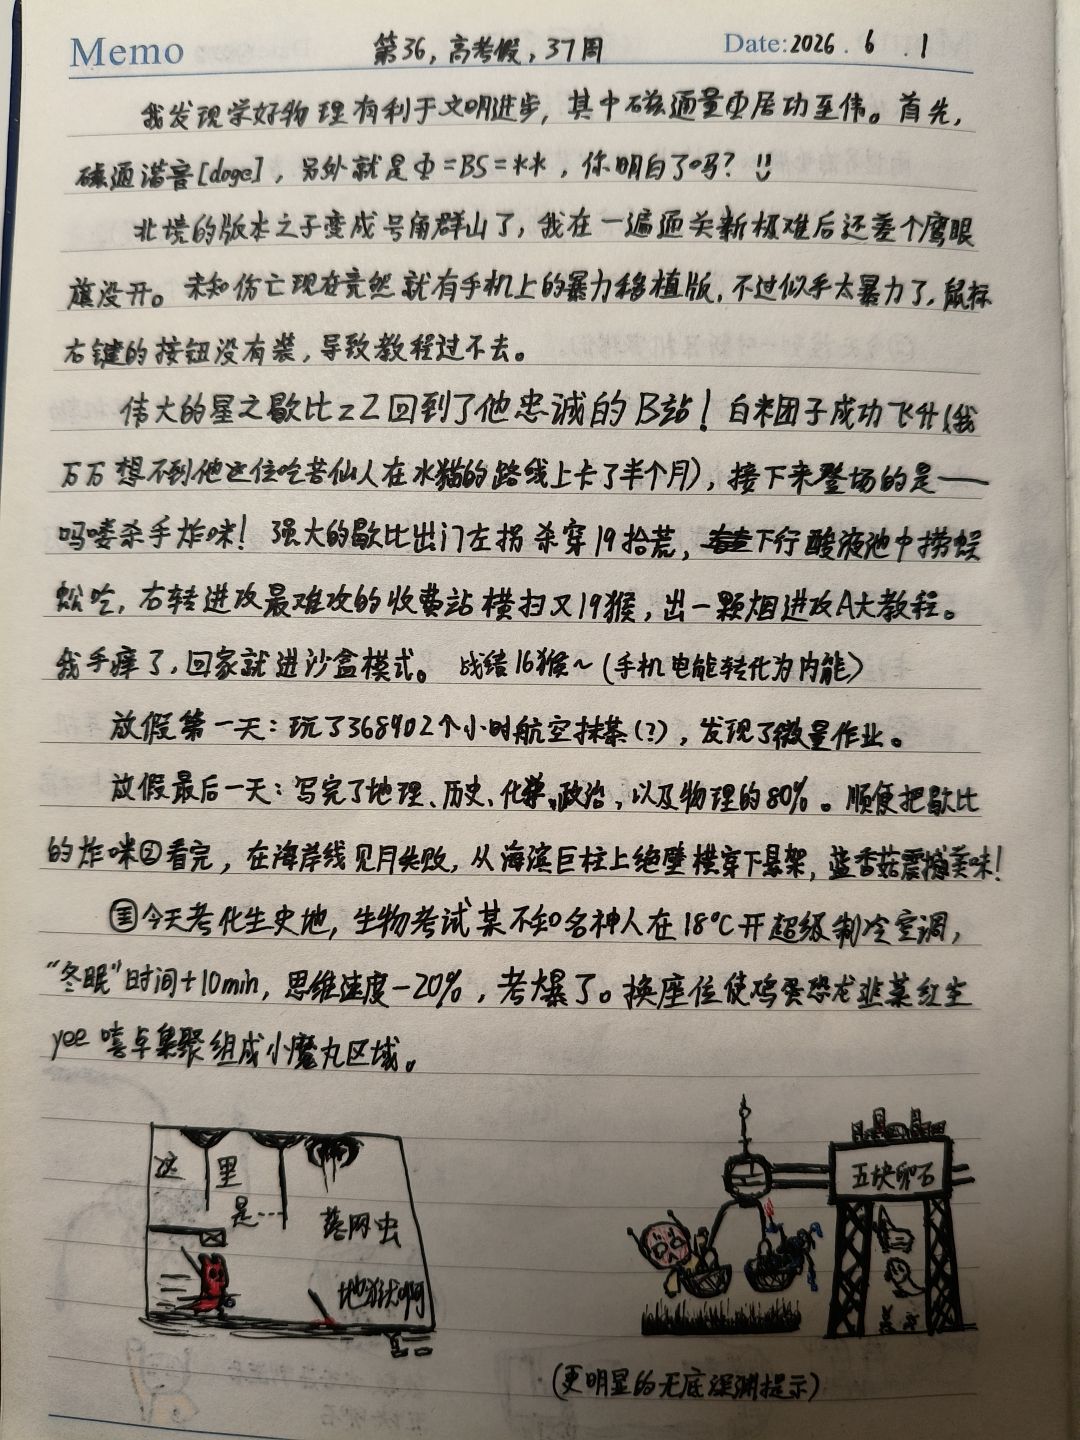 Memo 第36,高考假,37周 Date:2026.6.1
我发现学好物理有利于文明进步,其中磁通量Φ居功至伟。首先,
磁通谐音[doge],另外就是Φ=BS=**,你明白了吗?
北境的版本之子变成号角群山了,我在一遍通关新极难后还差个鹰眼
旗没开。未知伤亡现在竟然就有手机上的暴力移植版,不过似乎太暴力了,鼠标
右键的按钮没有装,导致教程过不去。
伟大的星之歇比zZ回到了他忠诚的B站!白米团子成功飞升(我
万万想不到他这位吃苦仙人在水猫的路线上卡了半个月),接下来登场的是——
吗喽杀手炸咪!强大的歇比出门左拐杀穿19拾荒,下行酸液池中捞蜈
蚣吃,右转进攻最难攻的收费站横扫又19猴,出一颗烟进攻A大教程。
我手痒了,回家就进沙盒模式。战绩16猴~(手机电能转化为内能)
放假第一天:玩了368902个小时航空抹茶(?),发现了微量作业。
放假最后一天:写完了地理、历史、化学、政治,以及物理的80%。顺便把歇比
的炸咪②看完,在海岸线见月失败,从海滨巨柱上绝壁横穿下悬架,蓝香菇震撼美味!
今天考化生史地,生物考试某不知名神人在18°C开超级制冷空调,
“冬眠”时间+10min,思维速度-20%,考爆了。换座位使鸡蛋恐龙韭菜红尘
yee嘻卓集聚组成小魔丸区域。
这里是…
落网虫
地狱啊
五块卵石
(更明显的无底深渊提示)